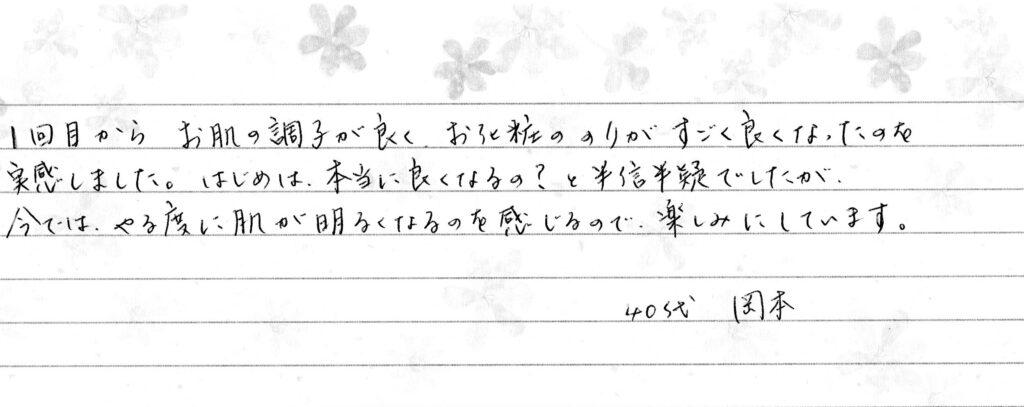 1回目から お肌の調子が良く、お化粧ののりがすごく良くなったのを
実感しました。はじめは、本当に良くなるの？と半信半疑でしたが、
今では、やる度に肌が明るくなるのを感じるので、楽しみにしています。
40代 岡本